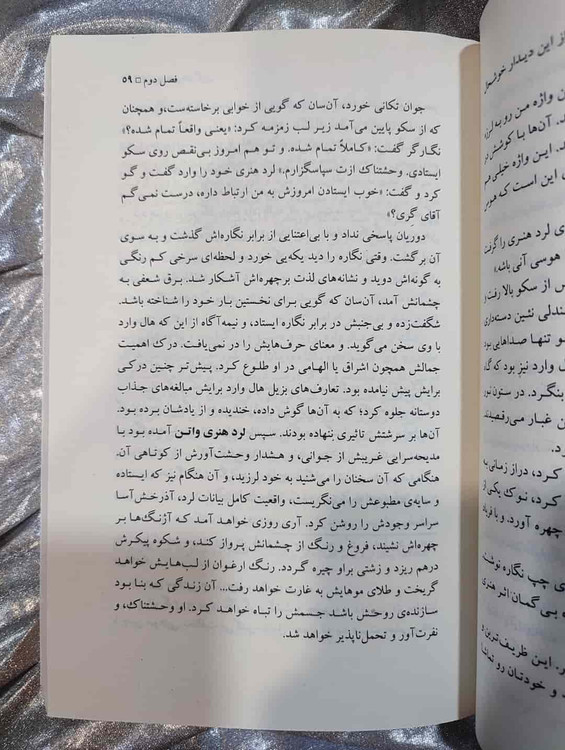 فصل دوم □ ۵۹
جوان تکانی خورد، آن‌سان که گویی از خوابی برخاسته‌ست،و همچنان
که از سکو پایین می‌آمد زیر لب زمزمه کرد: «یعنی واقعاً تمام شده؟»
نگارگر گفت: «کاملاً تمام شده. و تو هم امروز بی‌نقص روی سکو
ایستادی. وحشتناک ازت سپاسگزارم.» لرد هنری خود را وارد گفت و گو
کرد و گفت: «خوب ایستادن امروزش به من ارتباط داره، درست نمی‌گم
آقای گِری؟»
دوریان پاسخی نداد و با بی‌اعتنایی از برابر نگاره‌اش گذشت و به سوی
آن برگشت. وقتی نگاره را دید یکه‌یی خورد و لحظه‌ای سرخی کم رنگی
به گونه‌اش دوید و نشانه‌های لذت برچهره‌اش آشکار شد. برق شعفی به
چشمانش آمد، آن‌سان که گویی برای نخستین بار خود را شناخته باشد.
شگفت‌زده و بی‌جنبش در برابر نگاره ایستاد، و نیمه‌آگاه از این که هال وارد
با وی سخن می‌گوید. و معنای حرف‌هایش را در نمی‌یافت. درک اهمیت
جمالش همچون اشراق یا الهامی در او طلوع کرد. پیش‌تر چنین درکی
برایش پیش نیامده بود. تعارف‌های بزیل هال وارد برایش مبالغه‌های جذاب
دوستانه جلوه کرد؛ که به آن‌ها گوش داده، خندیده و از یادشان برده بود.
آن‌ها بر سرشتش تاثیری نِنهاده بودند. سپس لرد هنری واتن آمده بود با
مدیحه‌سرایی غریبش از جوانی، و هشدار وحشت‌آورش از کوتاهی آن.
هنگامی که آن سخنان را می‌شنید به خود لرزید، و آن هنگام نیز که ایستاده
و سایه‌ی مطبوعش را می‌نگریست، واقعیت کامل بیانات لرد، آذرخش‌آسا
سراسر وجودش را روشن کرد. آری روزی خواهد آمد که آژنگ‌ها بر
چهره‌اش نشیند، فروغ و رنگ از چشمانش پرواز کند، و شکوه پیکرش
درهم ریزد و زشتی براو چیره گردد. رنگ ارغوان از لب‌هایش خواهد
گریخت و طلای موهایش به غارت خواهد رفت... آن زندگی که بنا بود
سازنده‌ی روحش باشد جسمش را تباه خواهد کرد. او وحشتناک، و
نفرت‌آور و تحمل‌ناپذیر خواهد شد.
از این دیدار خوشحال
این واژه من رو به لرزه
آن‌ها با کوشش در
این واژه خیلی هم
این است که هوس
ی لرد هنری را گرفت
هوسی آنی باشه»
س از سکو بالا رفت و
صندلی نئین دسته‌داری
و تنها صداهایی بود
ل وارد نیز بود که گاه
بنگرد. در ستون نور
غبار می‌رقصیدند
کرد، دراز زمانی به
کرد، نوک یکی از
چهره آورد. و با فریاد
ی چپ نگاره نوشت.
بی‌گمان اثر هنری
ر. این ظریف‌ترین و
د و خودتان رو تماشا